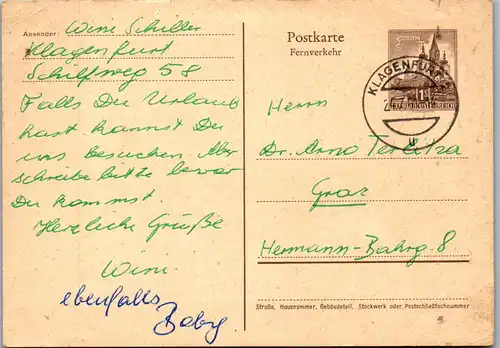 Absender: Wini Schiller
Klagenfurt
Schilfweg 58
Falls Du Urlaub
hast kannst Du
uns besuchen. Aber
schreibe bitte bevor
Du kommst.
Herzliche Grüße
Wini
ebenfalls
Postkarte
Fernverkehr
KLAGENFURT
Herrn
Dr. Arno Terlitza
Graz
Hermann-Bahrg. 8
Straße, Hausnummer, Gebäudeteil, Stockwerk oder Postschließfachnummer